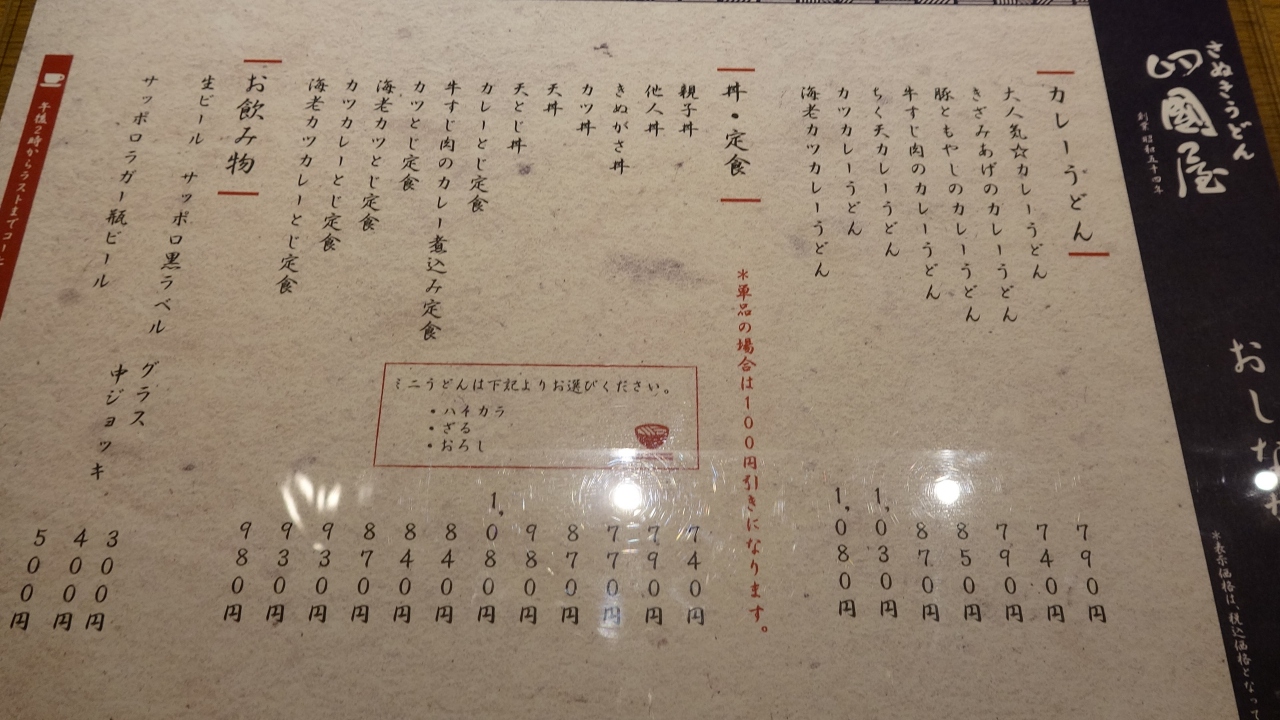 さぬきうどん
四國屋
創業 昭和五十四年
おしな
＊表示価格は、税込価格となって
カレーうどん
大人気☆カレーうどん 790円
きざみあげのカレーうどん 740円
豚ともやしのカレーうどん 790円
牛すじ肉のカレーうどん 850円
ちく天カレーうどん 870円
カツカレーうどん 1,030円
海老カツカレーうどん 1,080円
丼・定食
＊単品の場合は100円引きになります。
親子丼 740円
他人丼 790円
きぬがさ丼 770円
カツ丼 870円
天丼 980円
天とじ丼 1,080円
カレーとじ定食 840円
牛すじ肉のカレー煮込み定食 840円
カツとじ定食 870円
海老カツとじ定食 930円
カツカレーとじ定食 930円
海老カツカレーとじ定食 980円
ミニうどんは下記よりお選びください。
・ハイカラ
・ざる
・おろし
お飲み物
生ビール サッポロ黒ラベル グラス 300円
中ジョッキ 400円
サッポロラガー瓶ビール 500円
午後2時からラストまでコーヒ